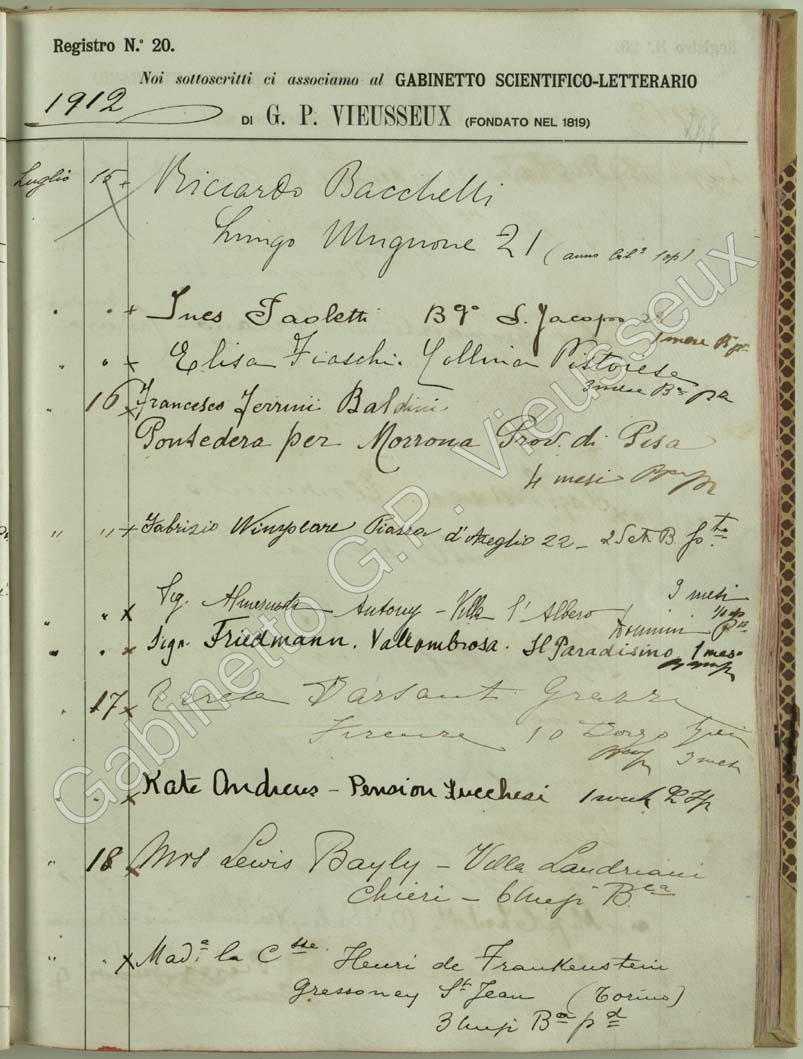 Registro N.° 20.
Noi sottoscritti ci associamo al GABINETTO SCIENTIFICO-LETTERARIO
1912
DI G. P. VIEUSSEUX (FONDATO NEL 1819)
Luglio 15 + Riccardo Bacchelli
Lungo Mugnone 21 (anno
" " + Ines Paoletti B° S. Jacopo
1 mese B
" " x Elisa Fiaschi. Collina Pistoiese
3 mesi B
" 16 x Francesco Ferrini Baldini
Pontedera per Morrona Prov. di Pisa
4 mesi
" " + Fabrizio Winspeare Piazza d'Azeglio 22 - 2 Set. B.
3 mesi
" " x Sig. Antony - Villa l'Albero
" " x Sign. Friedmann. Vallombrosa. Il Paradisino 1 mese
" 17 x Teresa Parsant
Firenze 10 Borgo
3 mesi
" " x Kate Andrews - Pension Lucchesi 1 week 2
" 18 x Mrs Lewis Bayly - Villa Landriani
Chieri - 6
" " x Mad.a la C.sse Henri de Frankenstein
Gressoney St Jean (Torino)
3
Gabinetto G.P. Vieusseux